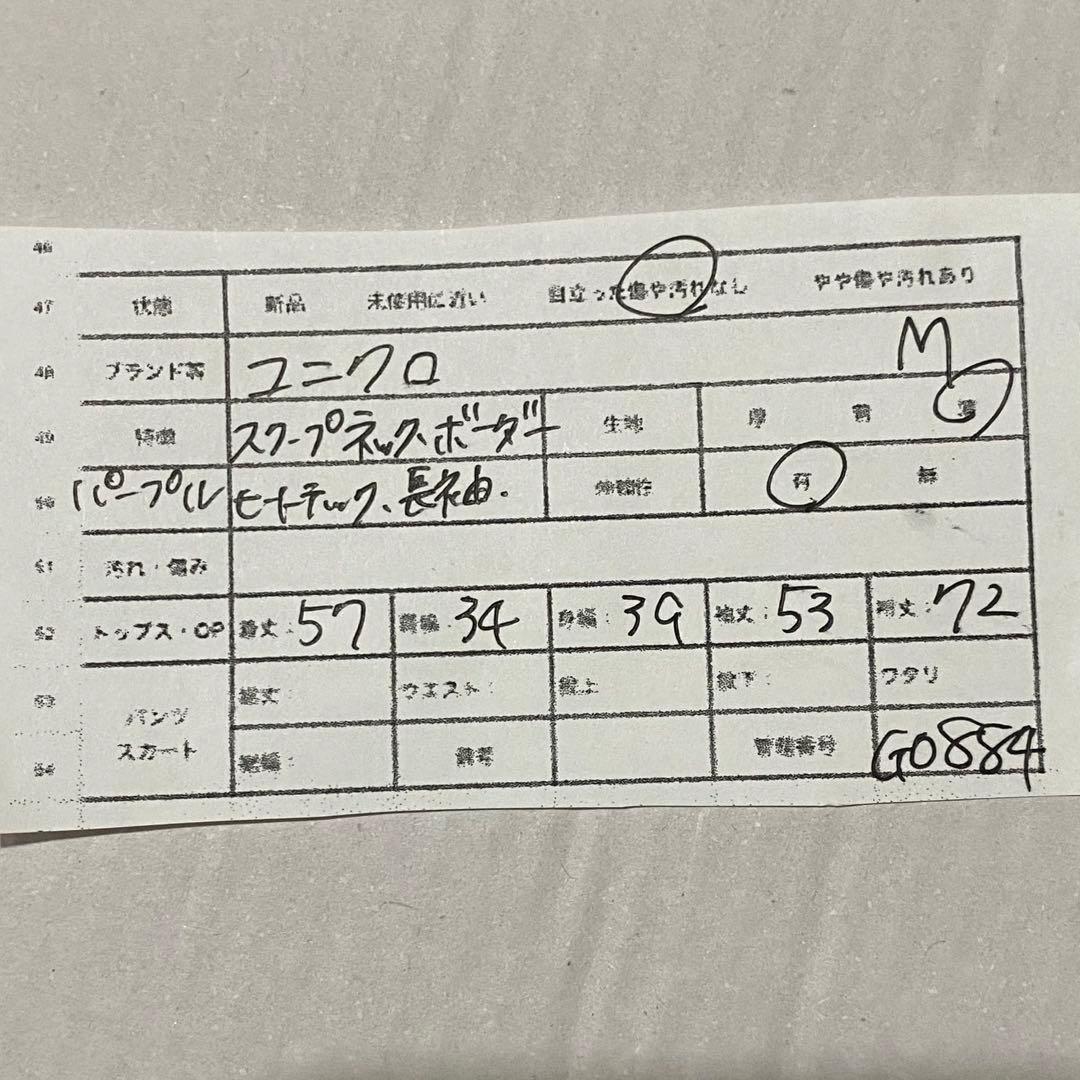 46
47 状態 新品 未使用に近い 目立った傷や汚れなし やや傷や汚れあり
48 ブランド名 ユニクロ M
49 特徴 スクープネック、ボーダー 生地 厚 普
50 パープル ヒートテック、長袖. 伸縮性 有 無
51 汚れ・傷み
52 トップス・OP 着丈:57 肩幅:34 身幅:39 袖丈:53 裄丈:72
53 パンツ 総丈: ウエスト: 股上 股下: ワタリ
54 スカート 裾幅: 備考 管理番号 G0884